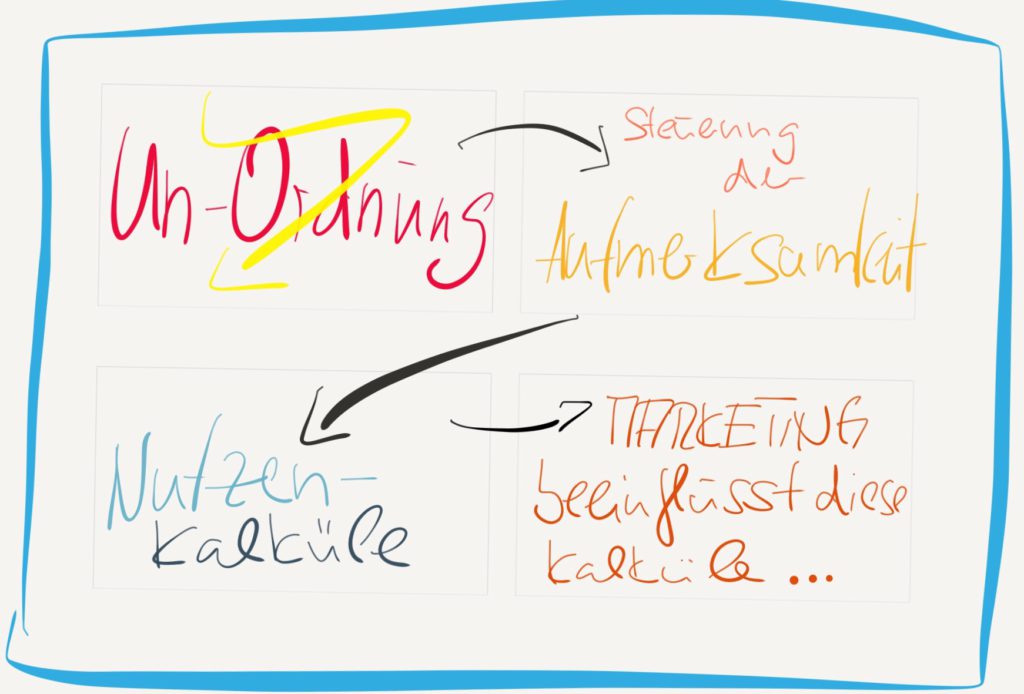 Un-Ordnung
Steuerung
der
Aufmerksamkeit
Nutzen-
Kalküle
MARKETING
beeinflusst diese
Kalküle ...